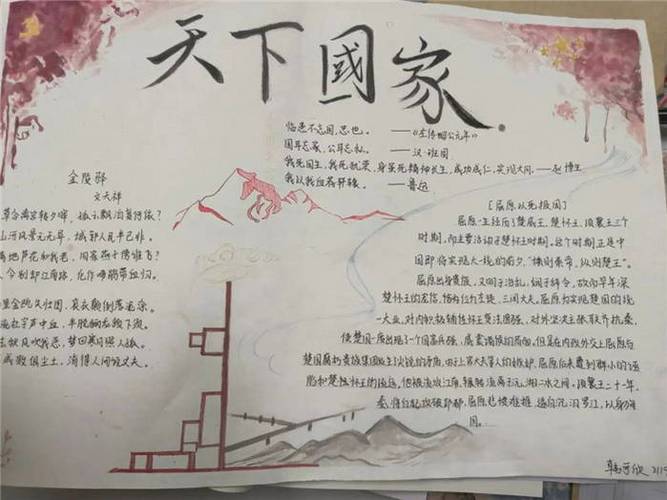 天下國家
临患不忘国,忠也。 ——《左传昭公元年》
国耳忘家,公耳忘私。 ——汉·班固
我死国生,我死犹荣,身虽死精神长生,成功成仁,实现大同。——赵博生
我以我血荐轩辕。 ——鲁迅
金陵驿
文天祥
草合离宫转夕晖,孤云飘泊复何依?
山河风景元无异,城郭人民半已非。
地芦花和我老,旧家燕子傍谁飞?
今别却江南路,化作啼鹃带血归。
里金瓯失旧图,衮衣颠倒落泥涂。
字声中血,半脱骊龙颔下须。
秋风吹我恶,梦回寒月照人孤。
成败俱尘土,消得人间说丈夫。
[屈原以死报国]
屈原一生经历了楚威王、楚怀王、顷襄王三个
时期,而主要活动于楚怀王时期。这个时期正是中
国即将实现大一统的前夕,“横则秦帝,纵则楚王”。
屈原出身贵族,又明于治乱,娴于辞令,故而早年深
楚怀王的宠信,位为左徒、三闾大夫。屈原为实现楚国的统
一大业,对内积极辅佐怀王变法图强,对外坚决主张联齐抗秦,
使楚国一度出现了一个国富兵强、威震诸侯的局面。但是在内政外交上屈原与
楚国腐朽贵族集团发生了尖锐的矛盾,由于上官大夫等人的嫉妒,屈原后来遭到群小的诬
陷和楚怀王的疏远,他被流放江南,辗转流离于沅、湘二水之间。顷襄王二十一年,
秦将白起攻破郢都,屈原悲愤难捱,遂自沉汨罗江,以身殉
国。